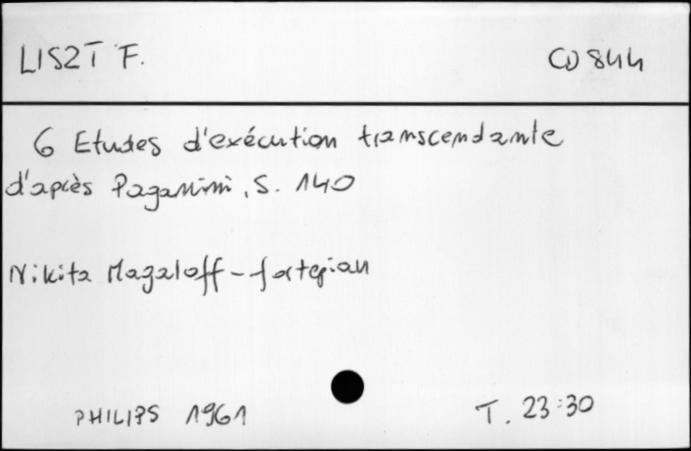 LISZT F.
CD 844
6 Etudes d'exécution transcendante
d'après Paganini, S. 140
Nikita Magaloff - fortepian
PHILIPS 1961
T. 23:30